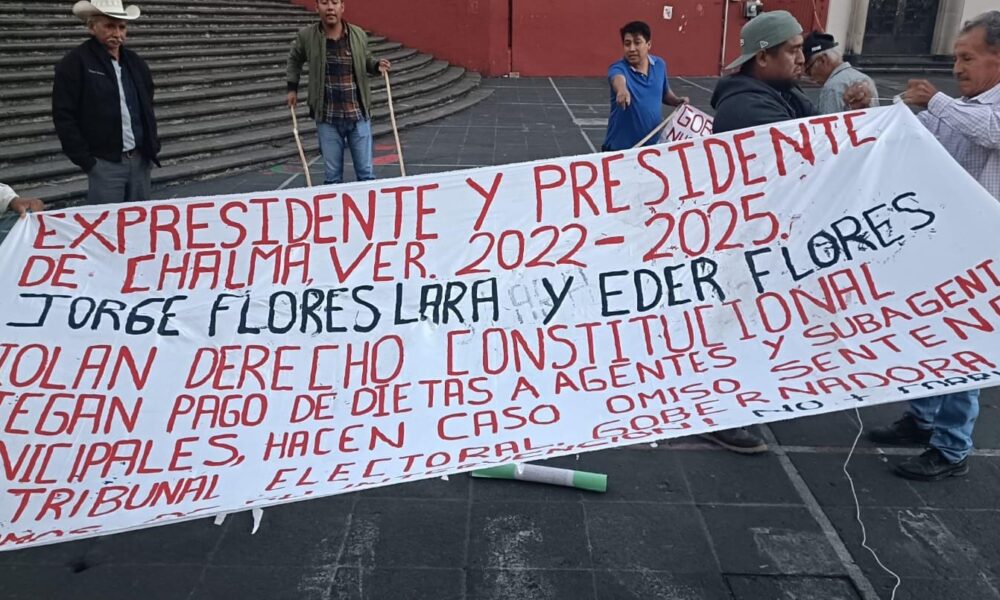 EXPRESIDENTE Y PRESIDENTE
DE CHALMA, VER. 2022-2025.
JORGE FLORES LARA Y EDER FLORES
IOLAN DERECHO CONSTITUCIONAL
IEGAN PAGO DE DIETAS A AGENTES Y SUBAGENT
NICIPALES, HACEN CASO OMISO SENTEN
TRIBUNAL ELECTORAL, GOBERNADORA
NO + CORR
GOB